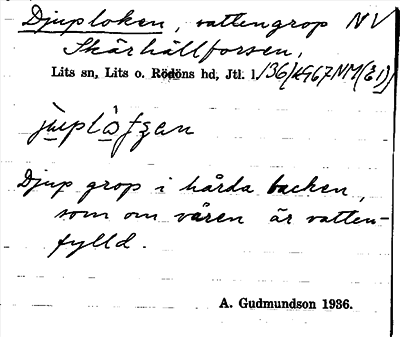 Djuploken, vattengrop NV
Skärhällforsen,
Lits sn, Lits o. Rödöns hd, Jtl. l.
Djup grop i hårda backen,
som om våren är vatten-
fylld.
A. Gudmundson 1936.